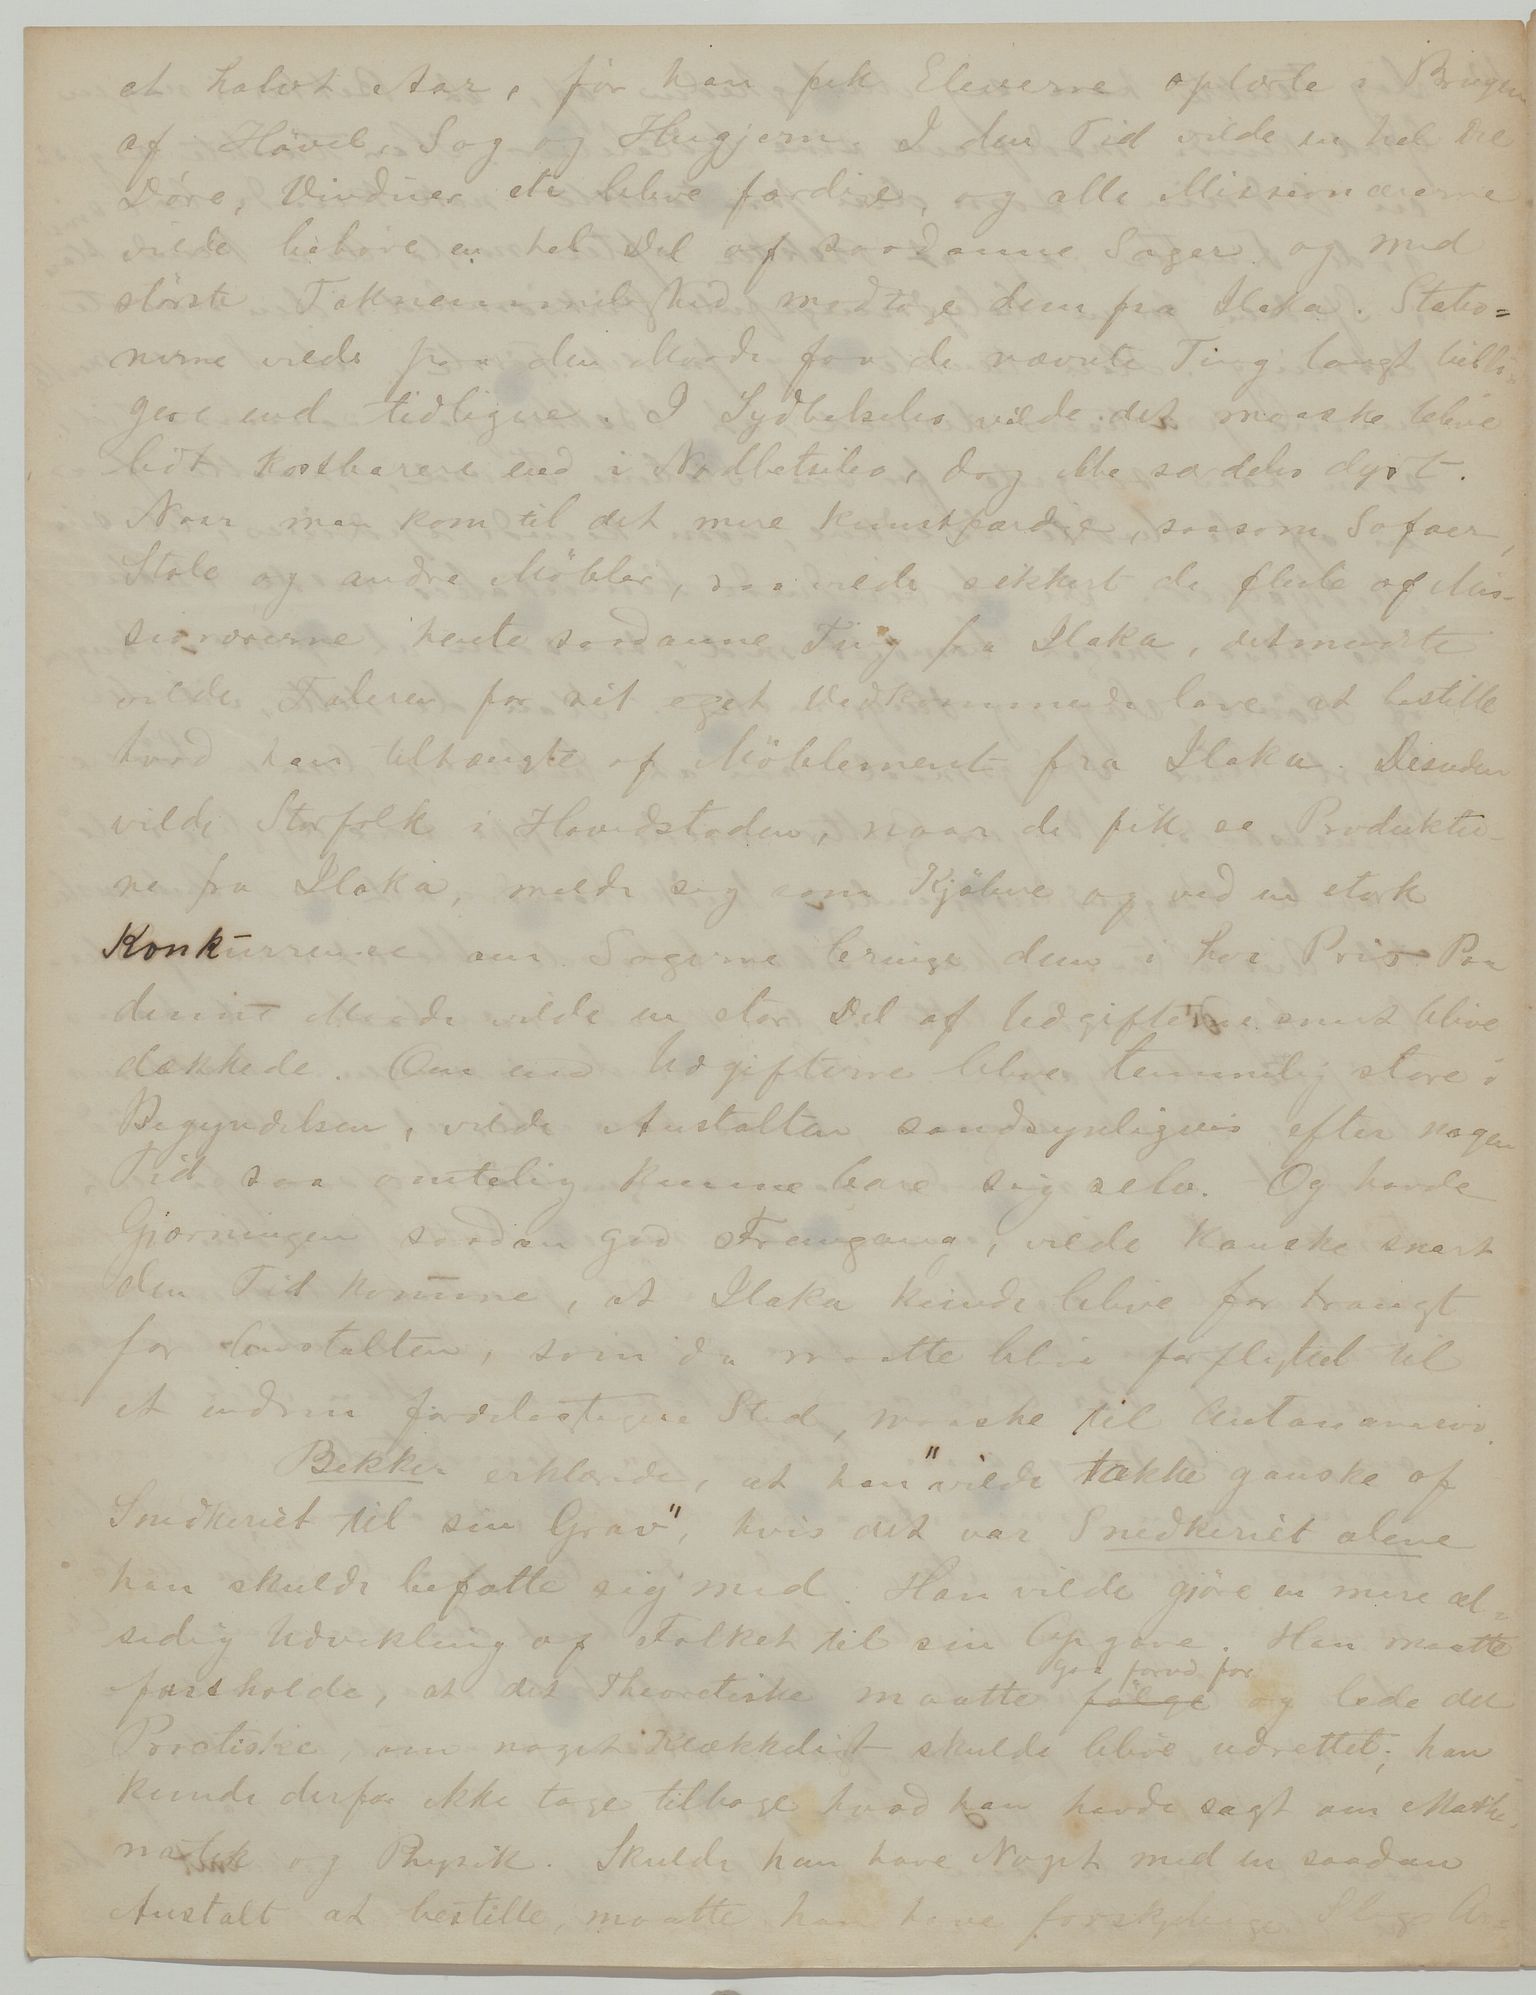 et halvt Aar, før han fik Eleverne oplærte i Brugen
af Hövel, Sag og Hugjern. I den Tid vilde en hel Del
Döre, Vinduer etc blive færdige, og alle Missionærerne
vilde behöve en hel Del af saadanne Sager og med
störste Taknemmelighed modtage dem fra Ilaka. Statio=
nerne vilde paa den Maade faa de nævnte Ting langt billi-
gere end tidligere. I Sydbetsileo vilde det maaske blive
lidt kostbarere end i Nordbetsileo, dog ikke særdeles dyrt.
Naar man kom til det mere kunstfærdige, saasom Sofaer,
Stole og andre Möbler, saa vilde sikkert de fleste af Mis-
sionærerne hente saadanne Ting fra Ilaka, detmindste
vilde Taleren for sit eget Vedkommende love at bestille
hvad han tiltrængte af Möblement fra Ilaka. Desuden
vilde Storfolk i Hovedstaden, naar de fik se Produkter-
ne fra Ilaka, melde sig som Kjöbere og ved en stærk
Konkurrence om Sagerne bringe dem i höi Pris. Paa
denne Maade vilde en stor Del af Udgifterne snart blive
dækkede. Om end Udgifterne blive temmelig store i
Begyndelsen, vilde Anstalten sandsynligvis efter nogen
Tid saa omtrentlig kunne bære sig selv. Og havde
Gjerningen saadan god Fremgang, vilde kanske snart
den Tid komme, at Ilaka kunde blive for trangt
for Anstalten, som da maatte blive forflyttet til
et andre fordelagtigere Sted, maaske til Antananarivo.
Bekker erklærede, at han "vilde takke ganske af
Snedkeriet til sin Grav", hvis det var Snedkeriet alene
han skulde befatte sig med. Han vilde gjöre en mere al-
sidig Udvikling af Folket til sin Opgave. Han maatte
fastholde, at det Theoretiske maatte fölge gaa forud for og lede det
Practiske, om noget Klækkeligt skulde blive udrettet; han
kunde derfor ikke tage tilbage hvad han havde sagt om Mathe-
matik og Physik. Skulde han have Noget med en saadan
Anstalt at bestille, maatte han have forskjellige Slags Ar=